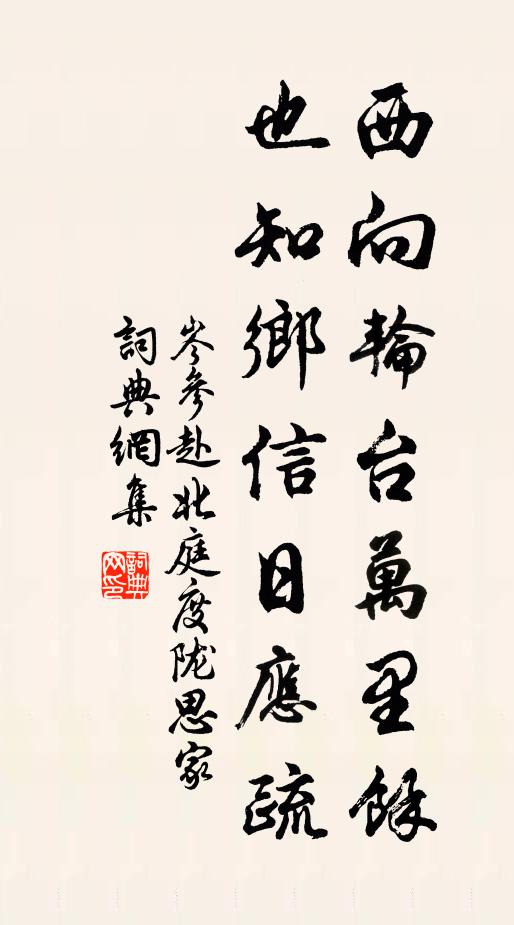 西向輪台萬里餘
也知鄉信日應疏
岑參赴北庭度陇思家
詞典網集
詞典
网印